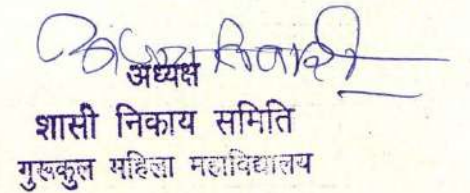 अध्यक्ष
शासी निकाय समिति
गुरूकुल महिला महाविद्यालय